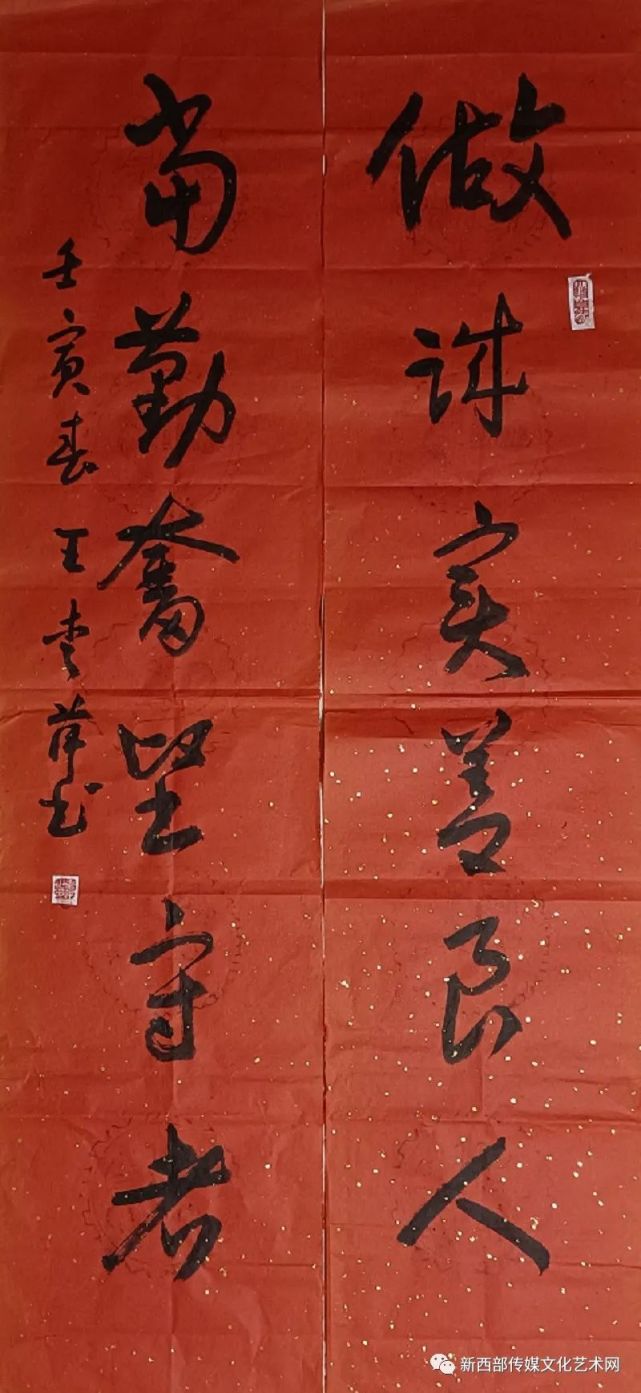 做诚实善良人
当勤奋坚守者
壬寅春王
书
新西部传媒文化艺术网